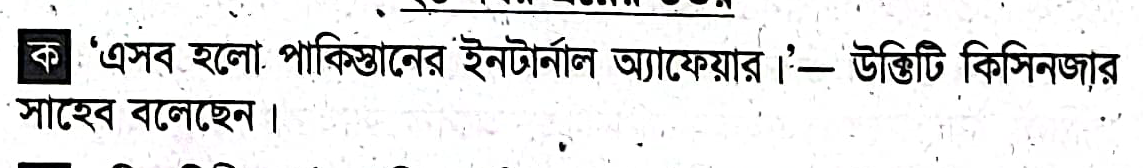 ক 'এসব হলো পাকিস্তানের ইনটার্নাল অ্যাফেয়ার।'— উক্তিটি কিসিনজার
সাহেব বলেছেন।